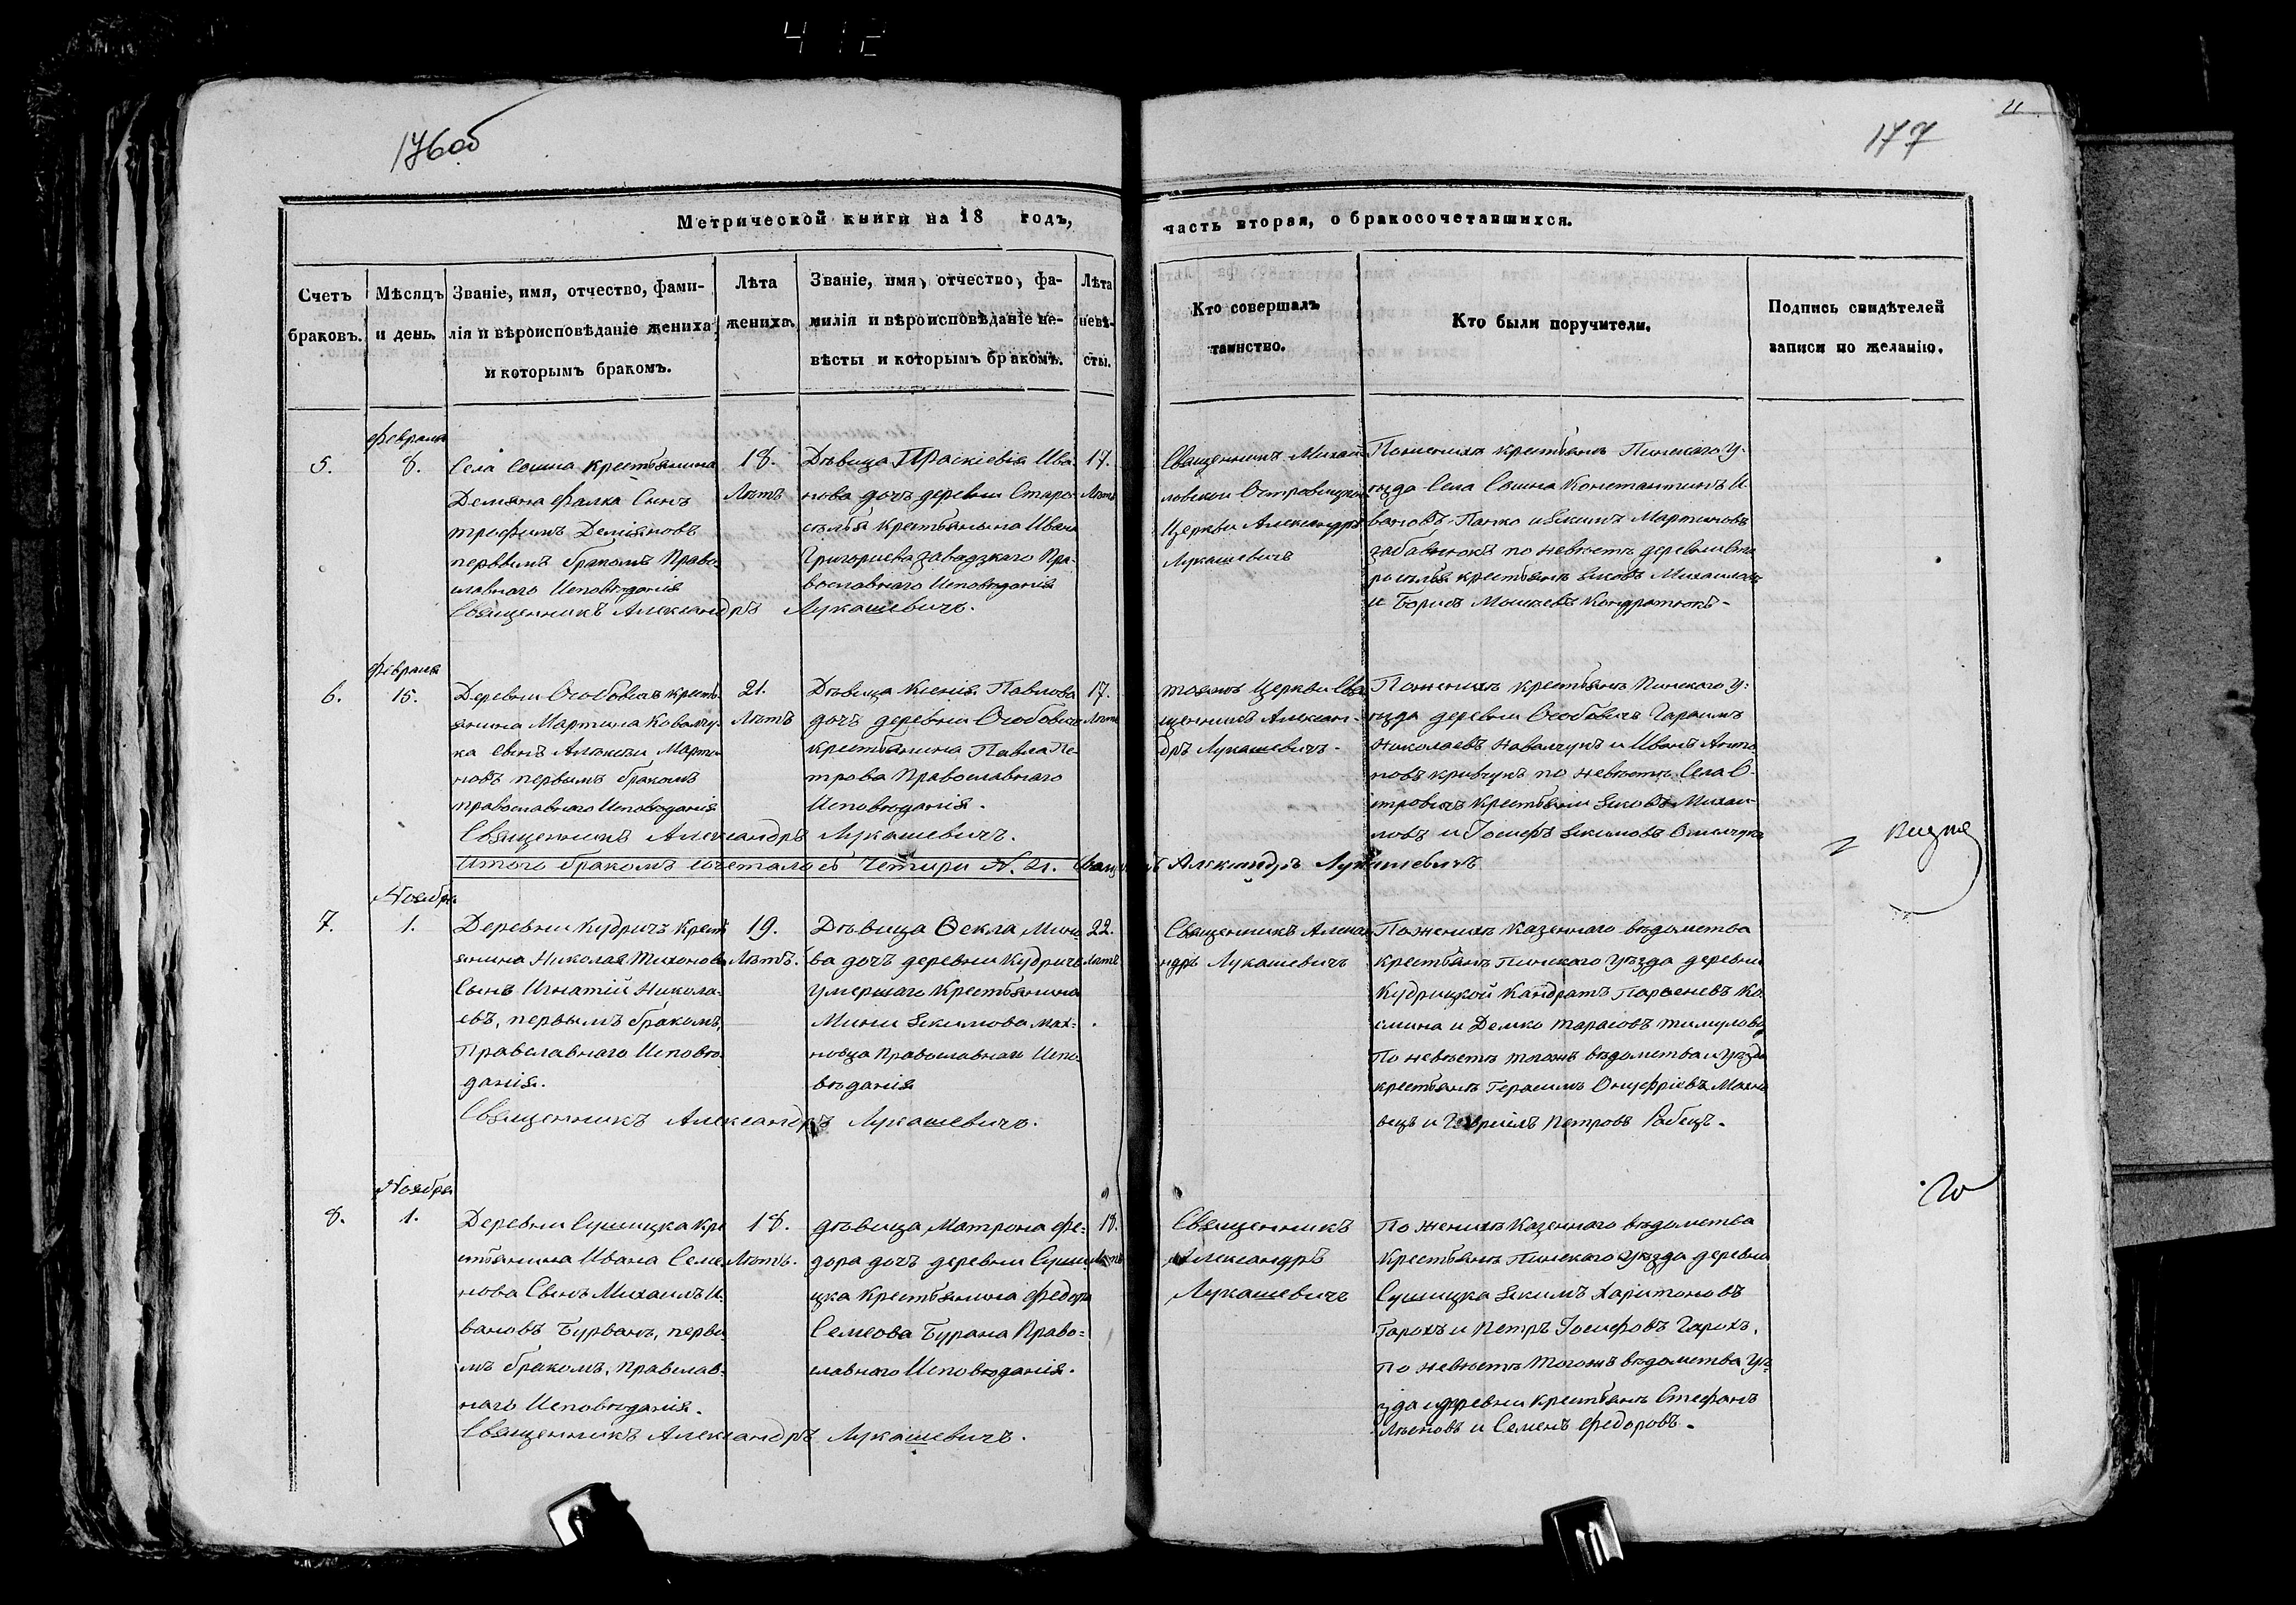 412
176об
177
11
Метрической книги на 18 годъ,
часть вторая, о бракосочетавшихся.
Счетъ браковъ.
Мѣсяцъ и день.
Званіе, имя, отчество, фами-
лія и вѣроисповѣданіе жениха
и которымъ бракомъ.
Лѣта
жениха.
Званіе, имя, отчество, фа-
милія и вѣроисповѣданіе не-
вѣсты и которымъ бракомъ.
Лѣта
невѣ-
сты.
Кто совершалъ
таинство.
Кто были поручители.
Подпись свидѣтелей
записи по желанію.
5.
Февраля
8.
Села Сошна крестьянина
Демяна Фалка Сынъ
трофимъ Деміяновъ
первымъ бракомъ Право
славнаго Исповѣданія
18.
Лѣтъ
Дѣвица Праскіевія Ива-
нова дочъ деревни Старо-
сѣлья крестьянина Ивана
Григориева завадзкаго Пра-
вославнаго Исповѣданія
17.
Лѣтъ
Священникъ Александръ Лукашевичъ.
Священникъ Михай
ловской Островицкой
Церкви Александръ
Лукашевичъ
По женихѣ крестьянъ Пинскаго у-
ѣзда Села Сошна Константинъ И-
вановъ Панко и Якимъ Мартиновъ
забавнюкъ по невѣстѣ деревни Ста
росѣлья крестьянъ Яковъ Михаиловъ
и Борисъ Мошеевъ Кондратюкъ-
6.
Февраля
15.
Деревни Особовичъ кресть-
янина Мартина Ковалчу-
ка сынъ Алѣксѣй Марти-
новъ первымъ бракомъ
православнаго Исповѣданія
21.
Лѣтъ
Дѣвица Ксенія Павлова
дочъ деревни Особовичъ
крестьянина Павла Пе-
трова Православнаго
Исповѣданія.
17.
Лѣтъ
Священникъ Александръ Лукашевичъ.
тояжъ Церкви Свя
щенникъ Алексан-
дръ Лукашевичъ-
По женихѣ крестьянъ Пинскаго у-
ѣзда деревни Особовичъ Гарасимъ
Николаевъ Ковалчукъ и Иванъ Анто-
новъ кривчукъ по невѣстѣ Села О-
стровичъ крестьяни Яковъ Михаи-
ловъ и Іосифъ Якимовъ
Итого бракомъ сочеталось Четири N. 21. Священникъ Александръ Лукашевичъ
7.
Ноября
1.
Деревни Кудричъ крест
янина Николая Тихонова
Сынъ Игнатій Никола-
евъ, первымъ бракомъ,
Правславнаго Исповѣ-
данія.
19.
Лѣтъ.
Дѣвица Ѳекла Мини-
ва дочъ деревни Кудричъ
умершаго Крестьянина
Мини Якимова Мах-
новца Православнаго Испо-
вѣданія
22.
Лѣтъ
Священникъ Александръ Лукашевичъ.
Священникъ Алекса
ндръ Лукашевичъ
По женихѣ Казеннаго вѣдомства
крестьянъ Пинскаго уѣзда деревни
Кудрицкой Кандратъ Парѳеневъ Ко-
смина и Демко Тарасовъ
По невѣстѣ тогожъ вѣдомства и уѣзда
крестьянъ Герасимъ Онуфріевъ Махно
вецъ и Гавріилъ Петровъ Рабецъ.
8.
Ноября
1.
Деревни Сушицка кре
стьянина Ивана Семе-
нова Сынъ Михаилъ И-
вановъ Бурванъ, первы
мъ бракомъ, Правслав-
наго Исповѣданія.
18.
Лѣтъ.
дѣвица Матрона Фе-
дора дочъ деревни Суши
цка Крестьянина Федора
Семеова Бурана Право-
славнаго Исповѣданія.
18.
Лѣтъ
Священникъ Александръ Лукашевичъ.
Священникъ
Александръ
Лукашевичъ
По женихѣ Казеннаго вѣдомства
Крестьянъ Пинскаго уѣзда деревни
Сушицка Якимъ Харитоновъ
Горохъ и Петръ Іосифовъ Горохъ,
по невѣстѣ тогожъ вѣдомства уѣ-
зда и деревни Крестьянъ Стефанъ
и Семенъ Федоровъ.